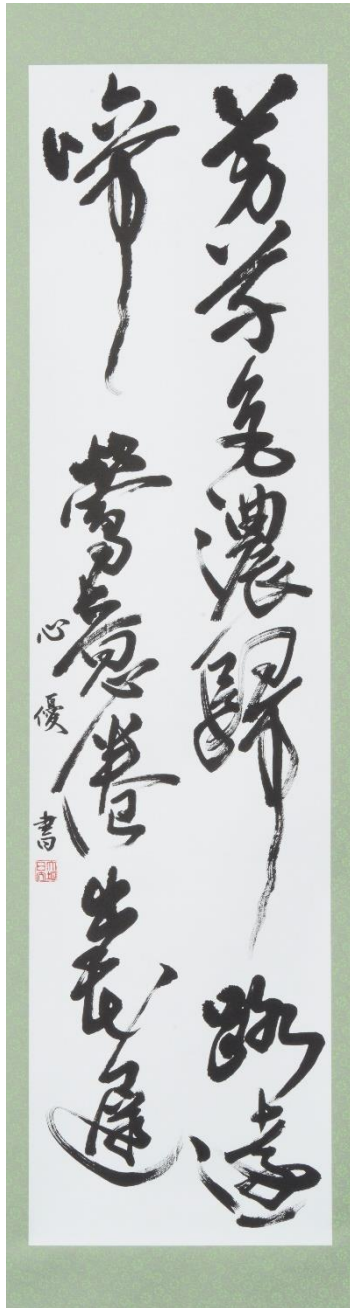 芳草色濃歸路遠
啼鶯意倦出花遲
心優書